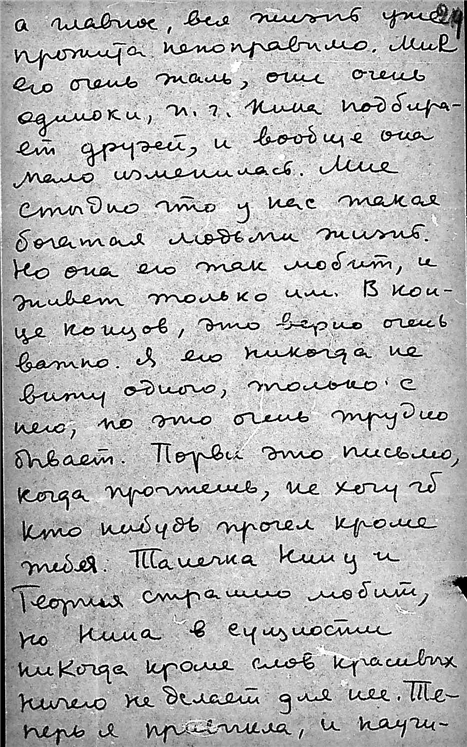 а главное, вся жизнь уже 29
прожита непоправимо. Мне
его очень жаль, они очень
одиноки, п. г. Нина подбира-
ет друзей, и вообще она
мало изменилась. Мне
стыдно что у нас такая
богатая людьми жизнь.
Но она его так любит, и
живет только им. В кон-
це концов, это верно очень
важно. Я его никогда не
вижу одного, только с
нею, но это очень трудно
бывает. Порви это письмо,
когда прочтешь, не хочу чб
кто нибудь прочел кроме
тебя. Танечка Нину и
Георгия страшно любит,
но Нина в сущности
никогда кроме слов красивых
ничего не делает для нее. Те-
перь я привыкла, и научи-